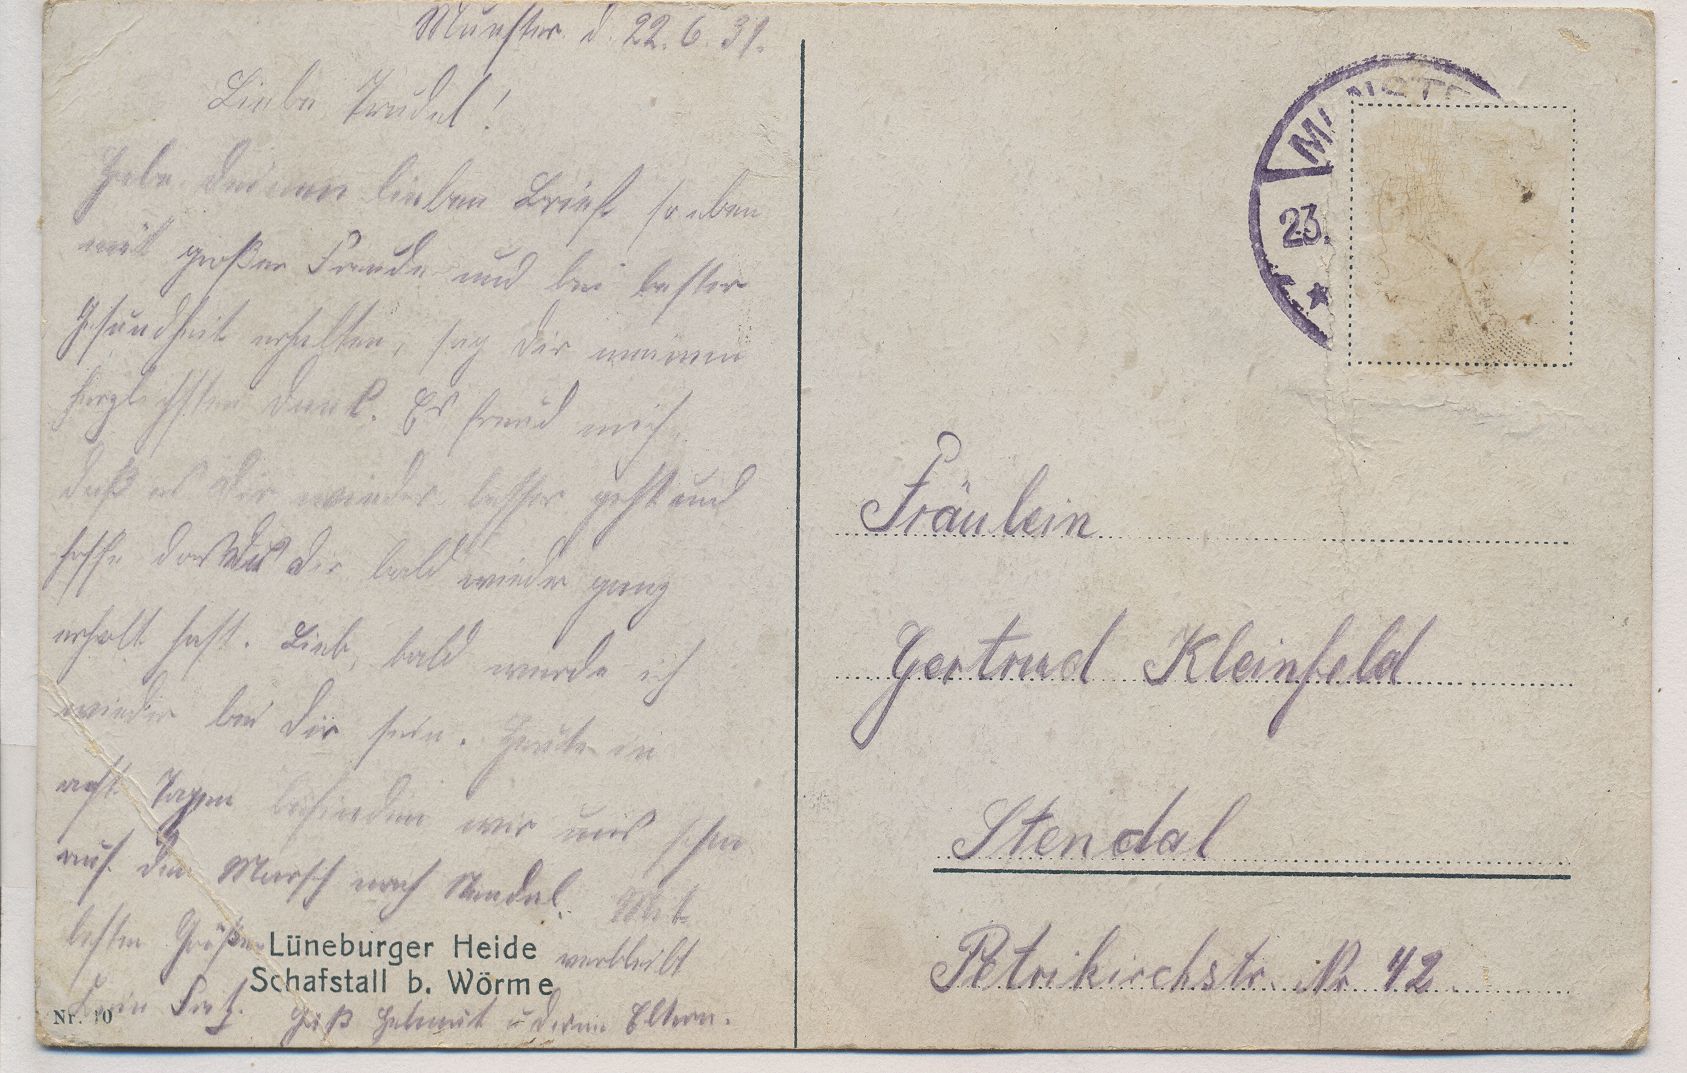 Munster d. 22.6.31.
Liebe Trudel!
Habe deinen lieben Brief soeben
mit großer Freude und bei bester
Gesundheit erhalten, sag dir meinen
herzlichsten Dank. Es freud mich
daß es dir wieder besser geht und
hoffe das du dir bald wieder ganz
erholt hast. Lieb, bald werde ich
wieder bei dir sein. Heute in
acht Tagen befinden wir uns schon
auf den Marsch nach Stendal. Mit
besten Grüßen verbleibt
Dein Fritz. Grüß Helmut u deine Eltern.
Lüneburger Heide
Schafstall b. Wörme
Nr. 10
MUNSTE
23.
Fräulein
Gertrud Kleinfeld
Stendal
Petrikirchstr. Nr 42.